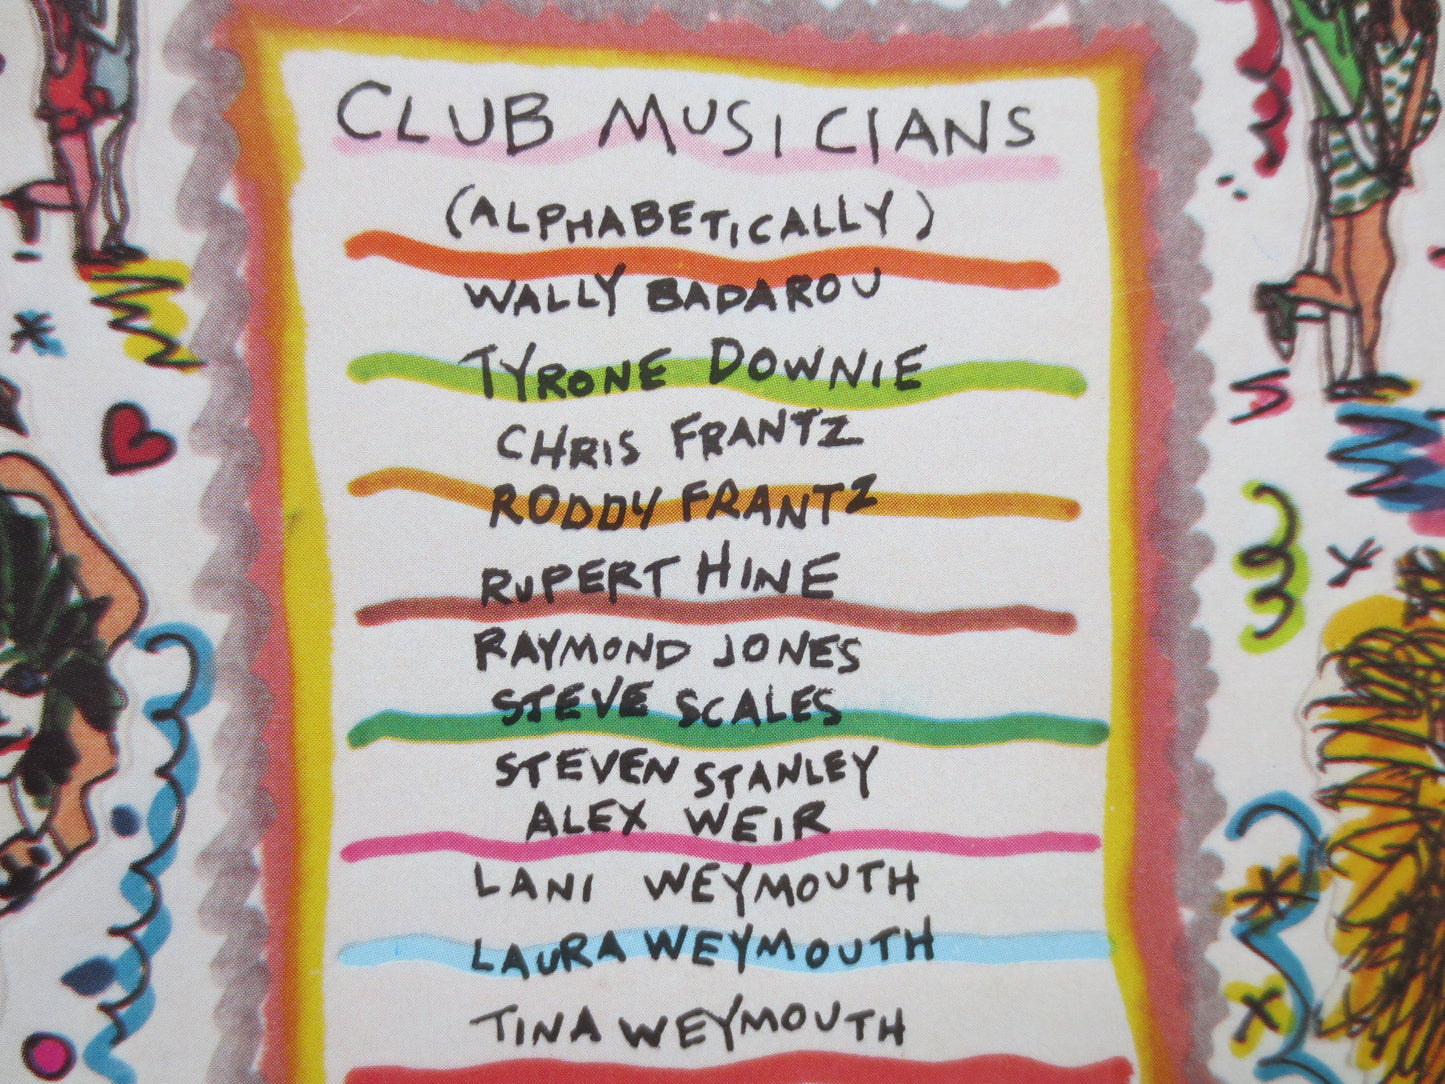 CLUB MUSICIANS
(ALPHABETICALLY)
WALLY BADAROU
TYRONE DOWNIE
CHRIS FRANTZ
RODDY FRANTZ
RUPERT HINE
RAYMOND JONES
STEVE SCALES
STEVEN STANLEY
ALEX WEIR
LANI WEYMOUTH
LAURA WEYMOUTH
TINA WEYMOUTH